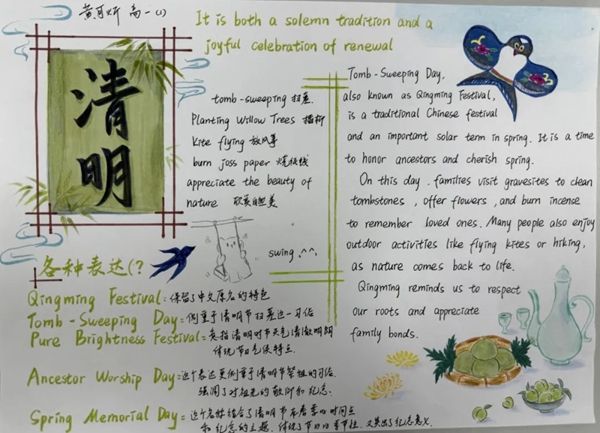 高一(1)
It is both a solemn tradition and a
joyful celebration of renewal
清明
tomb-sweeping 扫墓
Planting Willow Trees 插柳
Kite flying 放风筝
burn joss paper 烧纸钱
appreciate the beauty of
nature 欣赏自然美
swing .^^.
各种表达(?
Qingming Festival:保留了中文原名的特色
Tomb-Sweeping Day:侧重于清明节扫墓这一习俗
Pure Brightness Festival=意指清明时节天气清澈明朗
传统节日气候特点
Ancestor Worship Day=这个表达更侧重于清明节祭祖的习俗
强调了对祖先的敬仰和纪念.
Spring Memorial Day=这个名称结合了清明节在春季的时间点
和纪念的主题,体现了节日的季节性,又突出了纪念意义
Tomb-Sweeping Day,
also known as Qingming Festival,
is a traditional Chinese festival
and an important solar term in spring. It is a time
to honor ancestors and cherish spring.
On this day, families visit gravesites to clean
tombstones, offer flowers, and burn incense
to remember loved ones. Many people also enjoy
outdoor activities like flying kites or hiking,
as nature comes back to life.
Qingming reminds us to respect
our roots and appreciate
family bonds.